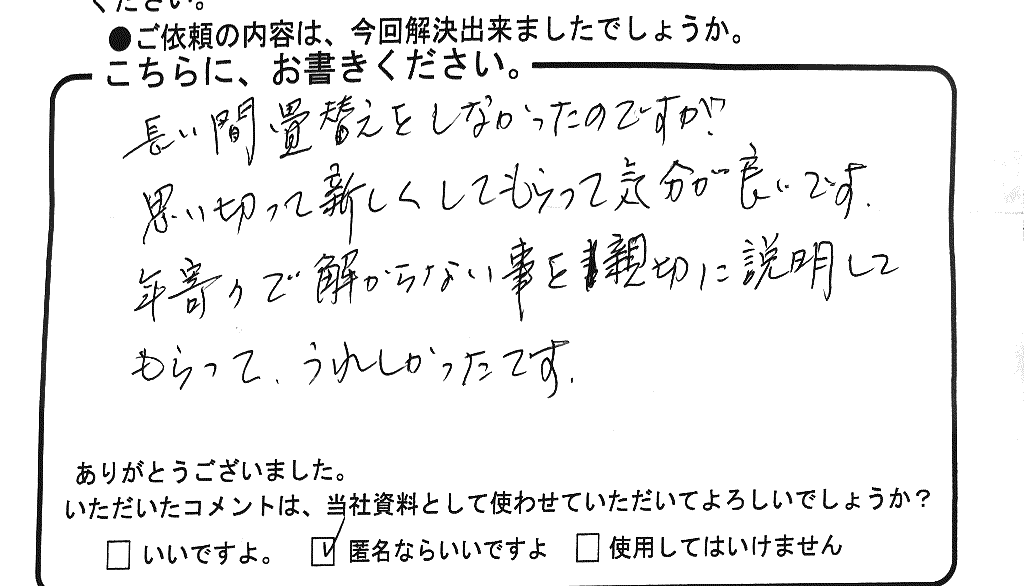 ください。
●ご依頼の内容は、今回解決出来ましたでしょうか。
こちらに、お書きください。
長い間畳替えをしなかったのですが?
思い切って新しくしてもらって気分が良いです.
年寄りで解からない事を親切に説明して
もらって、うれしかったです.
ありがとうございました。
いただいたコメントは、当社資料として使わせていただいてよろしいでしょうか?
□ いいですよ。 ☑ 匿名ならいいですよ □ 使用してはいけません